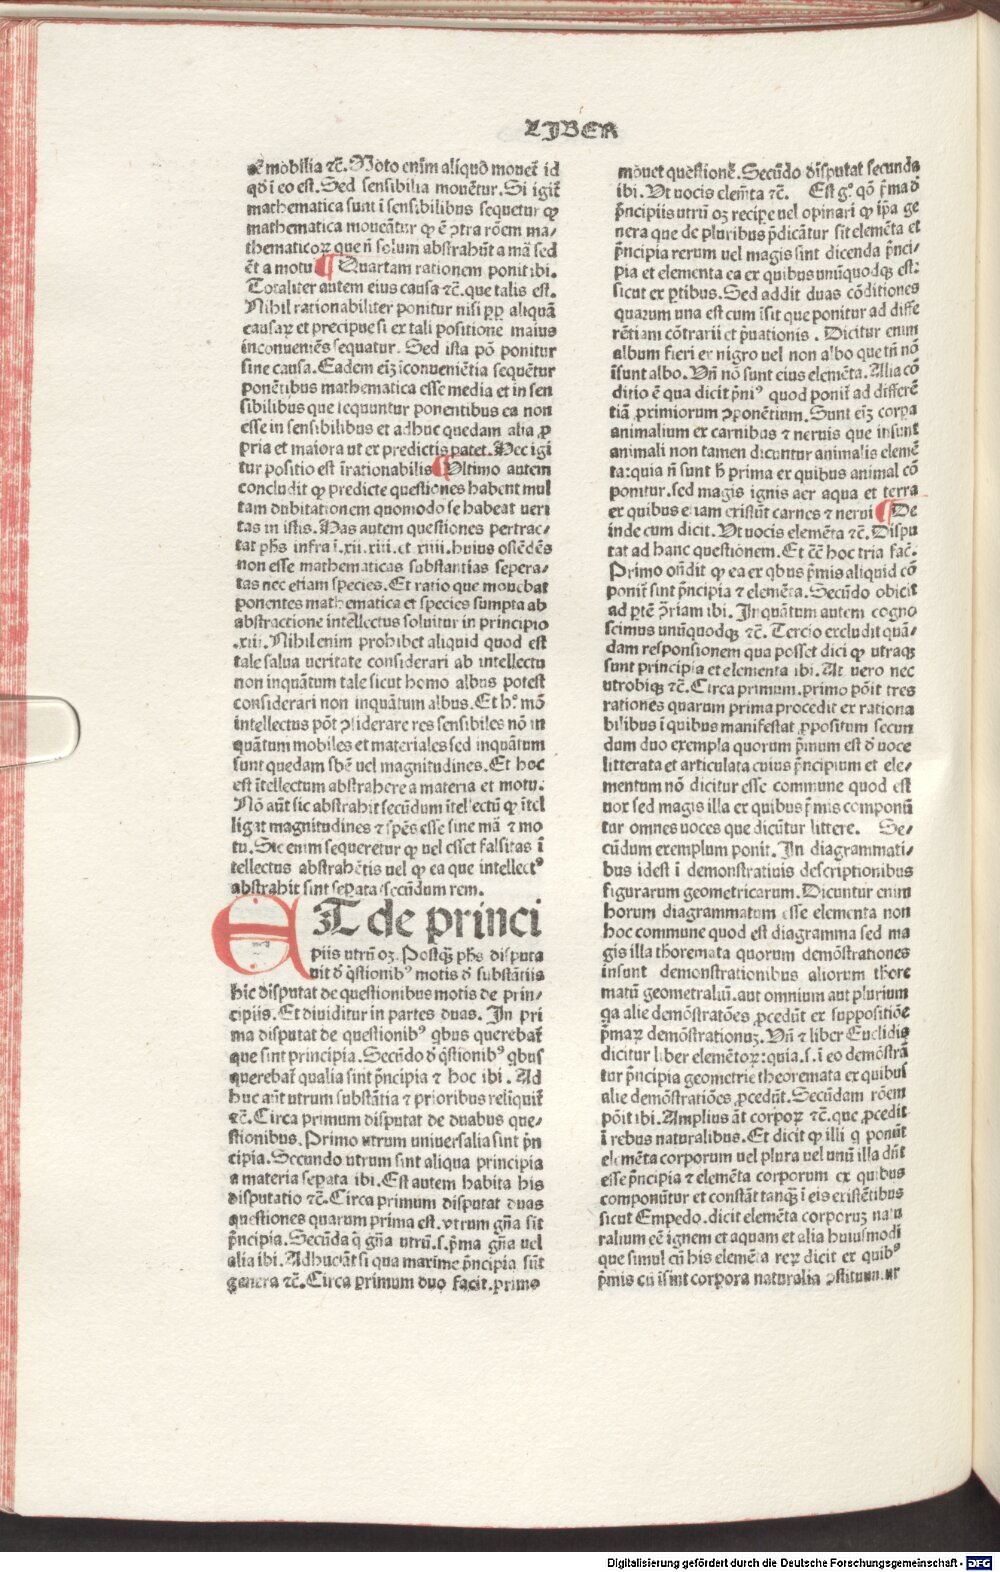 LIBER
mobilia ⁊c̃. Moto enĩm aliquo᷎ mouet̃ id
qd̃ ĩ eo est. Sed sensibilia mouẽtur. Si igit̃
mathematica sunt ĩ sensibilibus sequetur ꝙ
mathematica moueãtur ꝙ ẽ ꝯtra rõem ma/
thematicoꝝ que ñ solum abstrahũt a mã sed
ẽt a motu ¶ Quartam rationem ponit ibi.
Totaliter autem eius causa ⁊c̃. que talis est.
Nihil rationabiliter ponitur nisi ꝓp̱ aliquã
causaꝫ et precipue si ex tali positione maius
inconueniẽs sequatur. Sed ista põ ponitur
sine causa. Eadem eĩꝫ ĩconueniẽtia sequẽtur
ponẽtibus mathematica esse media et in sen
sibilibus que sequuntur ponentibus ea non
esse in sensibilibus et adhuc quedam alia ꝓ
pria et maiora ut ex predictis patet. Hec igi
tur positio est ĩrationabilis ¶ Ultimo autem
concludit ꝙ predicte questiones habent mul
tam dubitationem quomodo se habeat ueri
tas in istis. Has autem questiones pertrac/
tat phs̃ infra ĩ .xii. xiii. et xiiii. huius ostẽdẽs
non esse mathematicas substantias sepera/
tas nec etiam species. Et ratio que mouebat
ponentes mathematica et species sumpta ab
abstractione intellectus soluitur in principio
.xiii. Nihil enim prohibet aliquid quod est
tale salua ueritate considerari ab intellectu
non inquãtum tale sicut homo albus potest
considerari non inquãtum albus. Et hᵒ mõ
intellectus põt ꝯsiderare res sensibiles nõ in
quãtum mobiles et materiales sed inquãtum
sunt quedam sbẽ uel magnitudines. Et hoc
est ĩtellectum abstrahere a materia et motu.
Nõ aũt sic abstrahit secũdum ĩtellectũ ꝙ ĩtel
ligat magnitudines ⁊ spẽs esse sine mã ⁊ mo
tu. Sic enim sequeretur ꝙ uel esset falsitas ĩ
tellectus abstrahẽtis uel ꝙ ea que intellectꝰ
abstrahit sint sep̱ata secũdum rem.
AT de princi
piis utrũ oꝫ. Postqꝫ phs̃ disputa
uit d̃ q̃stionibꝰ motis d̃ substãtiis
hic disputat de questionibus motis de prin/
cipiis. Et diuiditur in partes duas. In pri
ma disputat de questionibꝰ qbus querebat̃
que sint principia. Secũdo d̃ q̃stionibꝰ qbus
querebat̃ qualia sint p̃ncipia ⁊ hoc ibi. Ad
huc aũt utrum substãtia ⁊ prioribus reliquit̃
⁊c̃. Circa primum disputat de duabus que/
stionibus. Primo utrum uniuersalia sint p̃n
cipia. Secundo utrum sint aliqua principia
a materia sep̱ata ibi. Est autem habita his
disputatio ⁊c̃. Circa primum disputat duas
questiones quarum prima est. utrum gñа sit
p̃ncipia. Secũda q̃ gña utrũ. s. p̃ma gña uel
alia ibi. Adhuc ãt si qua maxime p̃ncipia sũt
genera ⁊c̃. Circa primum duo facit. primo
mouet questionẽ. Secũdo disputat secunda
ibi. Ut uocis elem̃ta ⁊c̃. Est gᵒ qõ p̃ma d̃
p̃ncipiis utrũ oꝫ recipe uel opinari ꝙ ip̃a ge
nera que de pluribus p̃dicãtur sit elemẽta et
p̃ncipia rerum uel magis sint dicenda p̃nci/
pia et elementa ea ex quibus unũquodqꝫ est:
sicut ex ꝑtibus. Sed addit duas cõditiones
quarum una est cum ĩsit que ponitur ad diffe
rẽtiam cõtrarii et p̃uationis. Dicitur enim
album fieri ex nigro uel non albo que tñ nõ
ĩsunt albo. Uñ nõ sunt eius elemẽta. Alia cõ
ditio ẽ qua dicit p̃niꝰ quod ponit̃ ad differẽ
tiã primiorum ꝯponẽtium. Sunt eĩꝫ corpa
animalium ex carnibus ⁊ neruis que insunt
animali non tamen dicuntur animalis elemẽ
ta: quia ñ sunt h̃ prima ex quibus animal cõ
ponitur. sed magis ignis aer aqua et terra
ex quibus etiam existũt carnes ⁊ nerui ¶ De
inde cum dicit. Ut uocis elemẽta ⁊c̃. Dispu
tat ad hanc questionem. Et cc̃ hoc tria fac̃.
Primo oñdit ꝙ ea ex qbus p̃mis aliquid cõ
ponit̃ sint p̃ncipia ⁊ elemẽta. Secũdo obicit
ad ptẽ ꝯriam ibi. Inquãtum autem cogno
scimus unũquodqꝫ ⁊c̃. Tercio excludit quã/
dam responsionem qua posset dici ꝙ utraqꝫ
sunt principia et elementa ibi. At uero nec
utrobiqꝫ ⁊c̃. Circa primum. primo põit tres
rationes quarum prima procedit ex rationa
bilibus ĩ quibus manifestat ꝓpositum secun
dum duo exempla quorum p̃mum est d̃ uoce
litterata et articulata cuius p̃ncipium et ele/
mentum nõ dicitur esse commune quod est
uox sed magis illa ex quibus p̃mis componũ
tur omnes uoces que dicũtur littere. Se/
cũdum exemplum ponit. In diagrammati/
bus idest ĩ demonstratiuis descriptionibus
figurarum geometricarum. Dicuntur enim
horum diagrammatum esse elementa non
hoc commune quod est diagramma sed ma
gis illa theoremata quorum demõstrationes
insunt demonstrationibus aliorum theore
matũ geometraliũ. aut omnium aut plurium
qa alie demõstratões ꝓcedũt ex suppositiõe
p̃maꝝ demõstrationuꝫ. Uñ ⁊ liber Euclidis
dicitur liber elemẽtoꝝ: quia. s. ĩ eo demõstrã
tur p̃ncipia geometrie theoremata ex quibus
alie demõstratiões ꝓcedũt. Secũdam rõem
põit ibi. Amplius ãt corpoꝝ ⁊c̃. que ꝓcedit
ĩ rebus naturalibus. Et dicit ꝙ illi q ponũt
elemẽta corporum uel plura uel unũ illa dñt
esse p̃ncipia ⁊ elemẽta corporum ex quibus
componũtur et constãt tanqꝫ ĩ eis existẽtibus
sicut Empedo. dicit elemẽta corporuꝫ natu
ralium eẽ ignem et aquam et alia huiusmodi
que simul cũ his elemẽta reꝝ dicit ex quibꝰ
p̃mis cũ ĩsint corpora naturalia ꝯstituun. ur
Digitalisierung gefördert durch die Deutsche Forschungsgemeinschaft - DFG